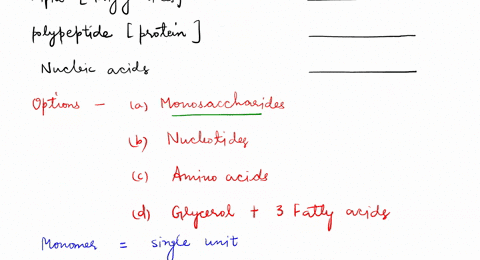 polypeptide [protein]
Nucleic acids
Options - (a) Monosaccharides
(b) Nucleotides
(c) Amino acids
(d) Glycerol + 3 Fatty acids
Monomer = single unit